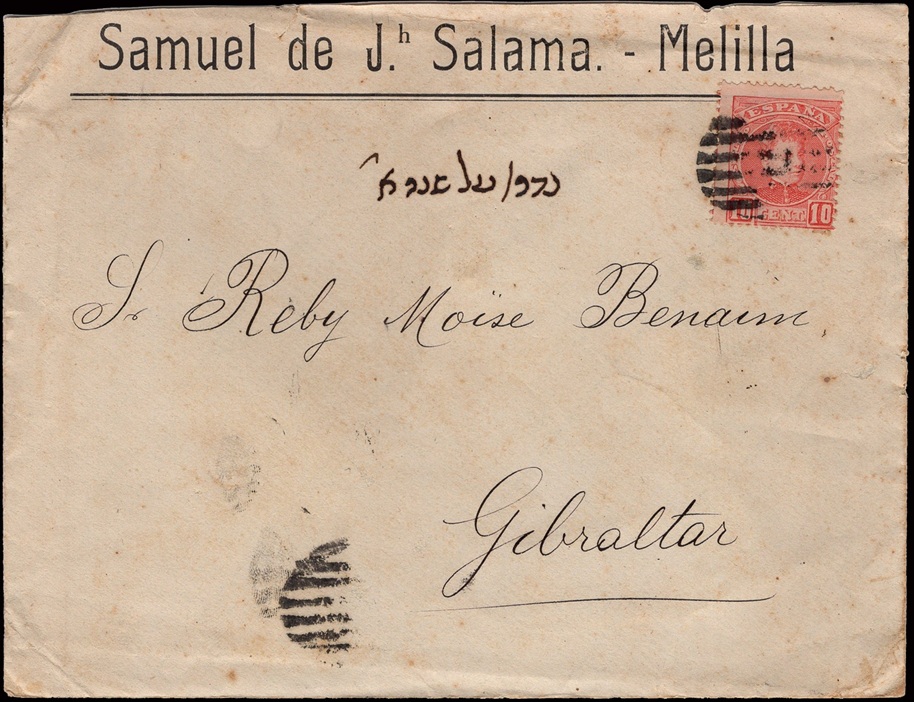 Samuel de Jh. Salama. - Melilla
ESPAÑA
10 CENT 10
Sr Reby Moïse Benaim
Gibraltar